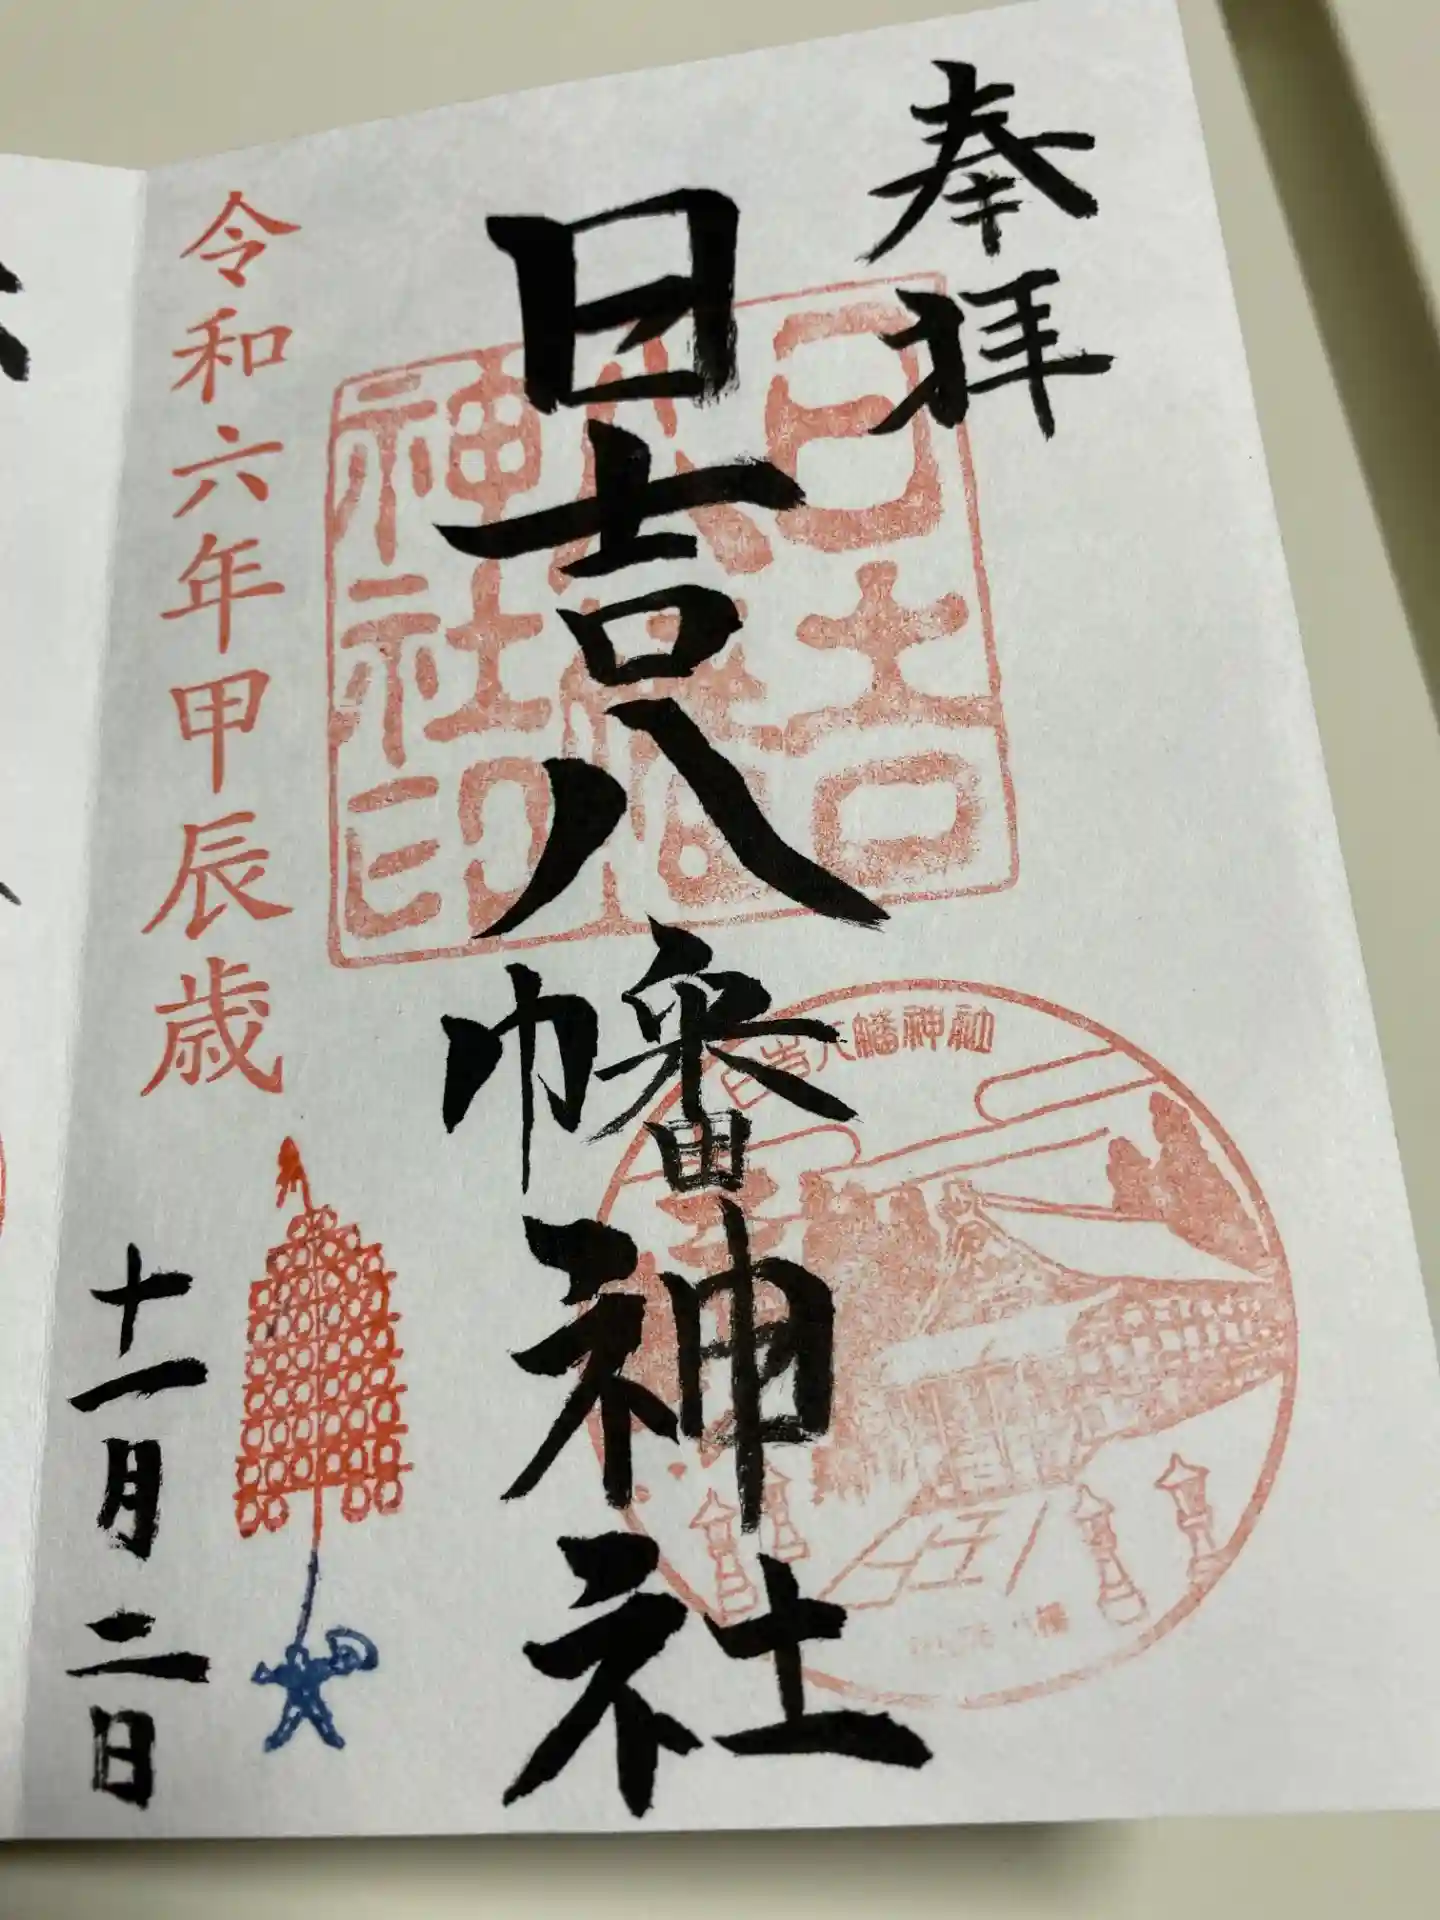 奉拝
日吉八幡神社
日吉
八幡宮
神社印
日吉八幡神社
令和六年甲辰歳
十一月二日